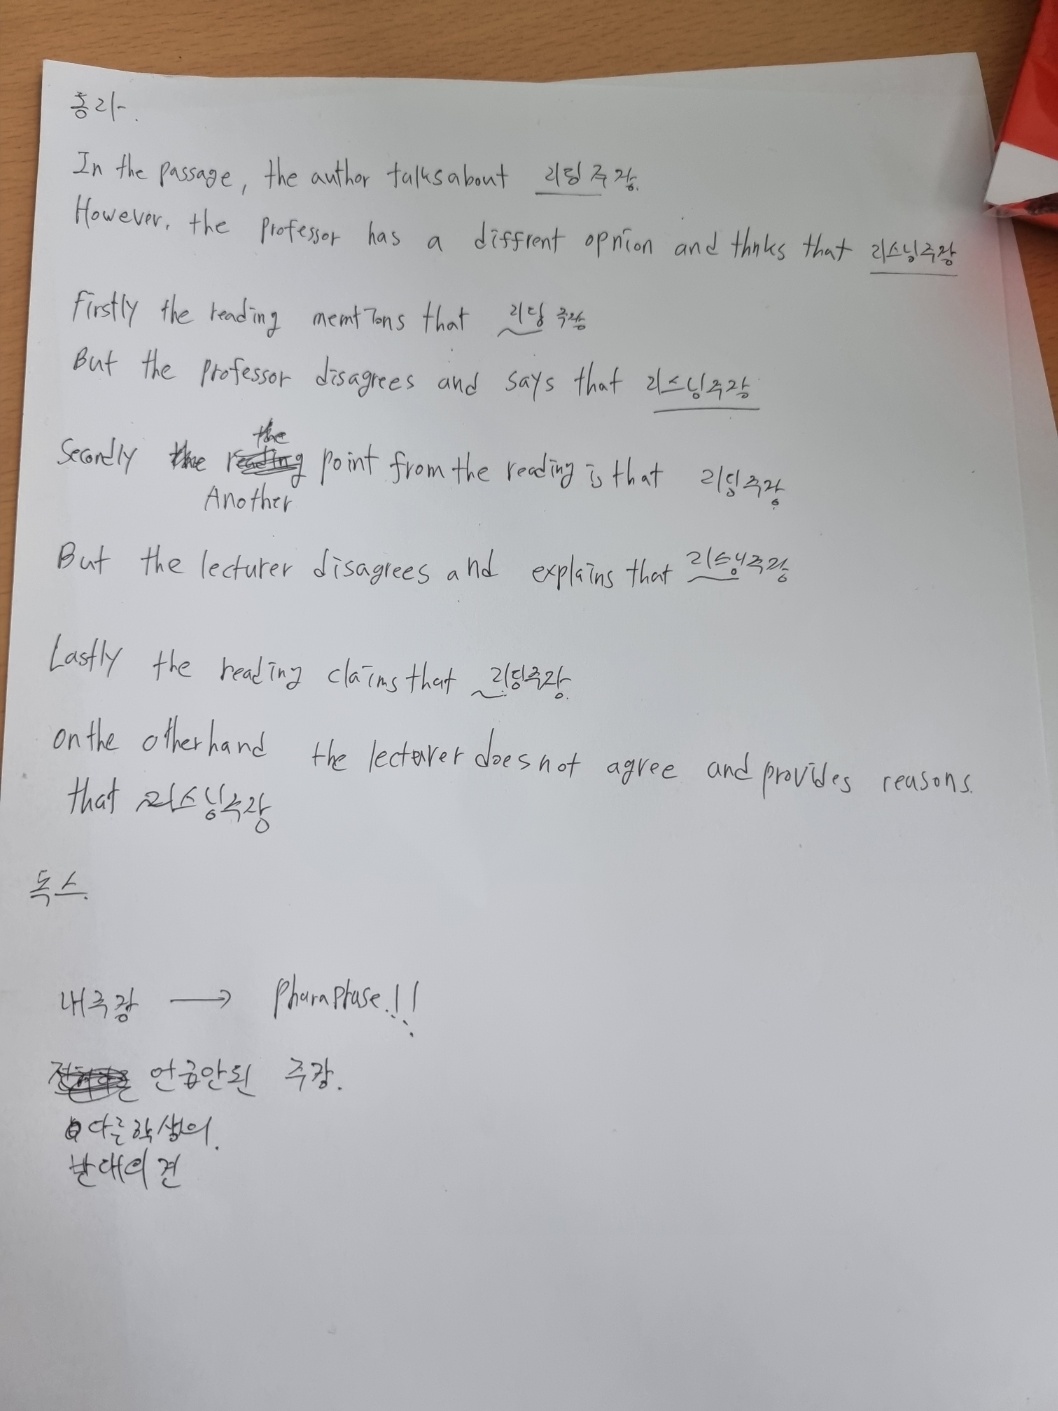 통라.
In the passage, the author talks about 리딩 주장.
However, the professor has a diffrent opnion and thnks that 리스닝주장
Firstly the reading memtions that 리딩 주장
But the professor disagrees and says that 리스닝주장
the
Secondly the point from the reading is that 리딩주장
Another
But the lecturer disagrees and explains that 리스닝주장
Lastly the reading claims that 리딩주장.
on the other hand the lecturer does not agree and provides reasons.
that 리스닝주장
독스.
내주장 → Pharaphase.!!
언급안된 주장.
다른학생의.
반대의견